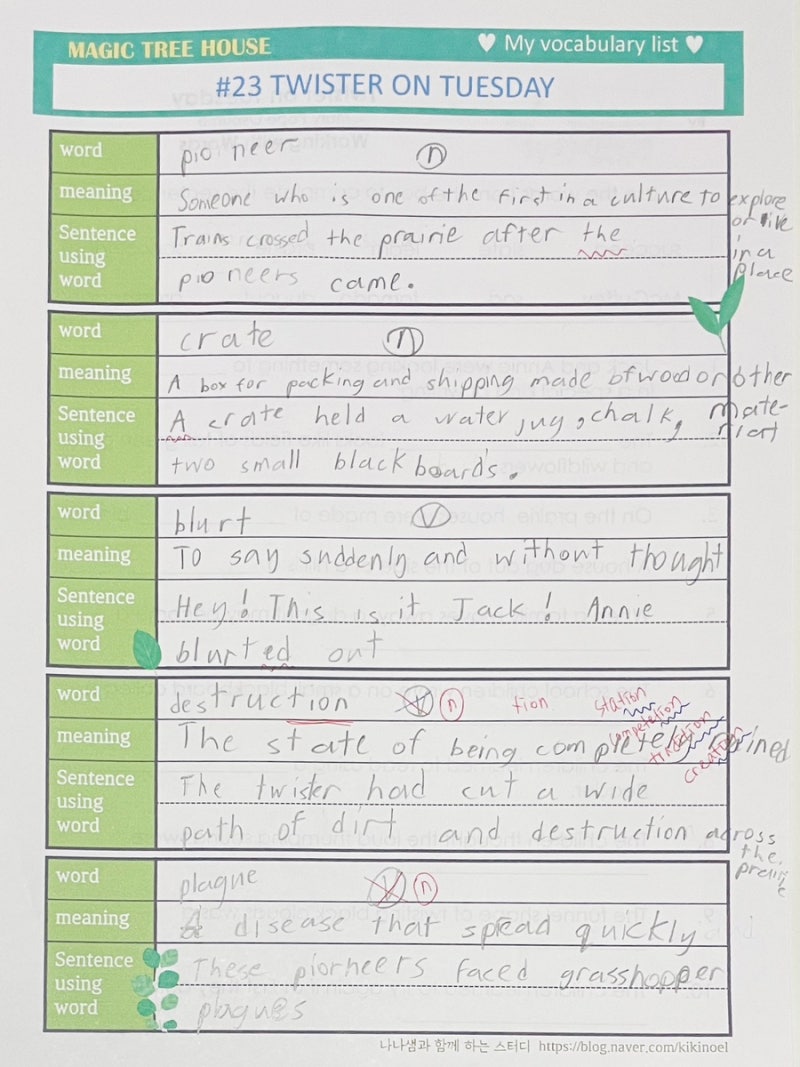 MAGIC TREE HOUSE
♥ My vocabulary list ♥
#23 TWISTER ON TUESDAY
word pioneer n
meaning Someone who is one of the first in a culture to explore or live in a place
Sentence using word Trains crossed the prairie after the
pioneers came.
word crate n
meaning A box for packing and shipping made of wood or other
Sentence using word A crate held a water jug, chalk,
two small blackboards.
word blurt V
meaning To say suddenly and without thought
Sentence using word Hey! This is it Jack! Annie
blurted out
word destruction V n tion station
competetion
tradition
creation
meaning The state of being completely
Sentence using word The twister had cut a wide
path of dirt and destruction across the
word plague V n
meaning A disease that spread quickly
Sentence using word These piorneers faced grasshopper
plagues
나나샘과 함께 하는 스터디 https://blog.naver.com/kikinoel